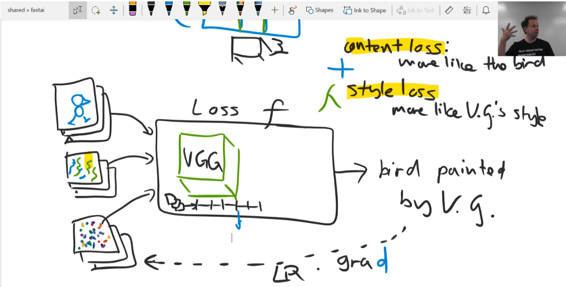 shared » fastai
Shapes
Ink to Shape
Ink to Text
3
content loss:
more like the bird
+
style loss
more like V.G's style
Loss f
VGG
bird painted
by V.G.
LR · grad